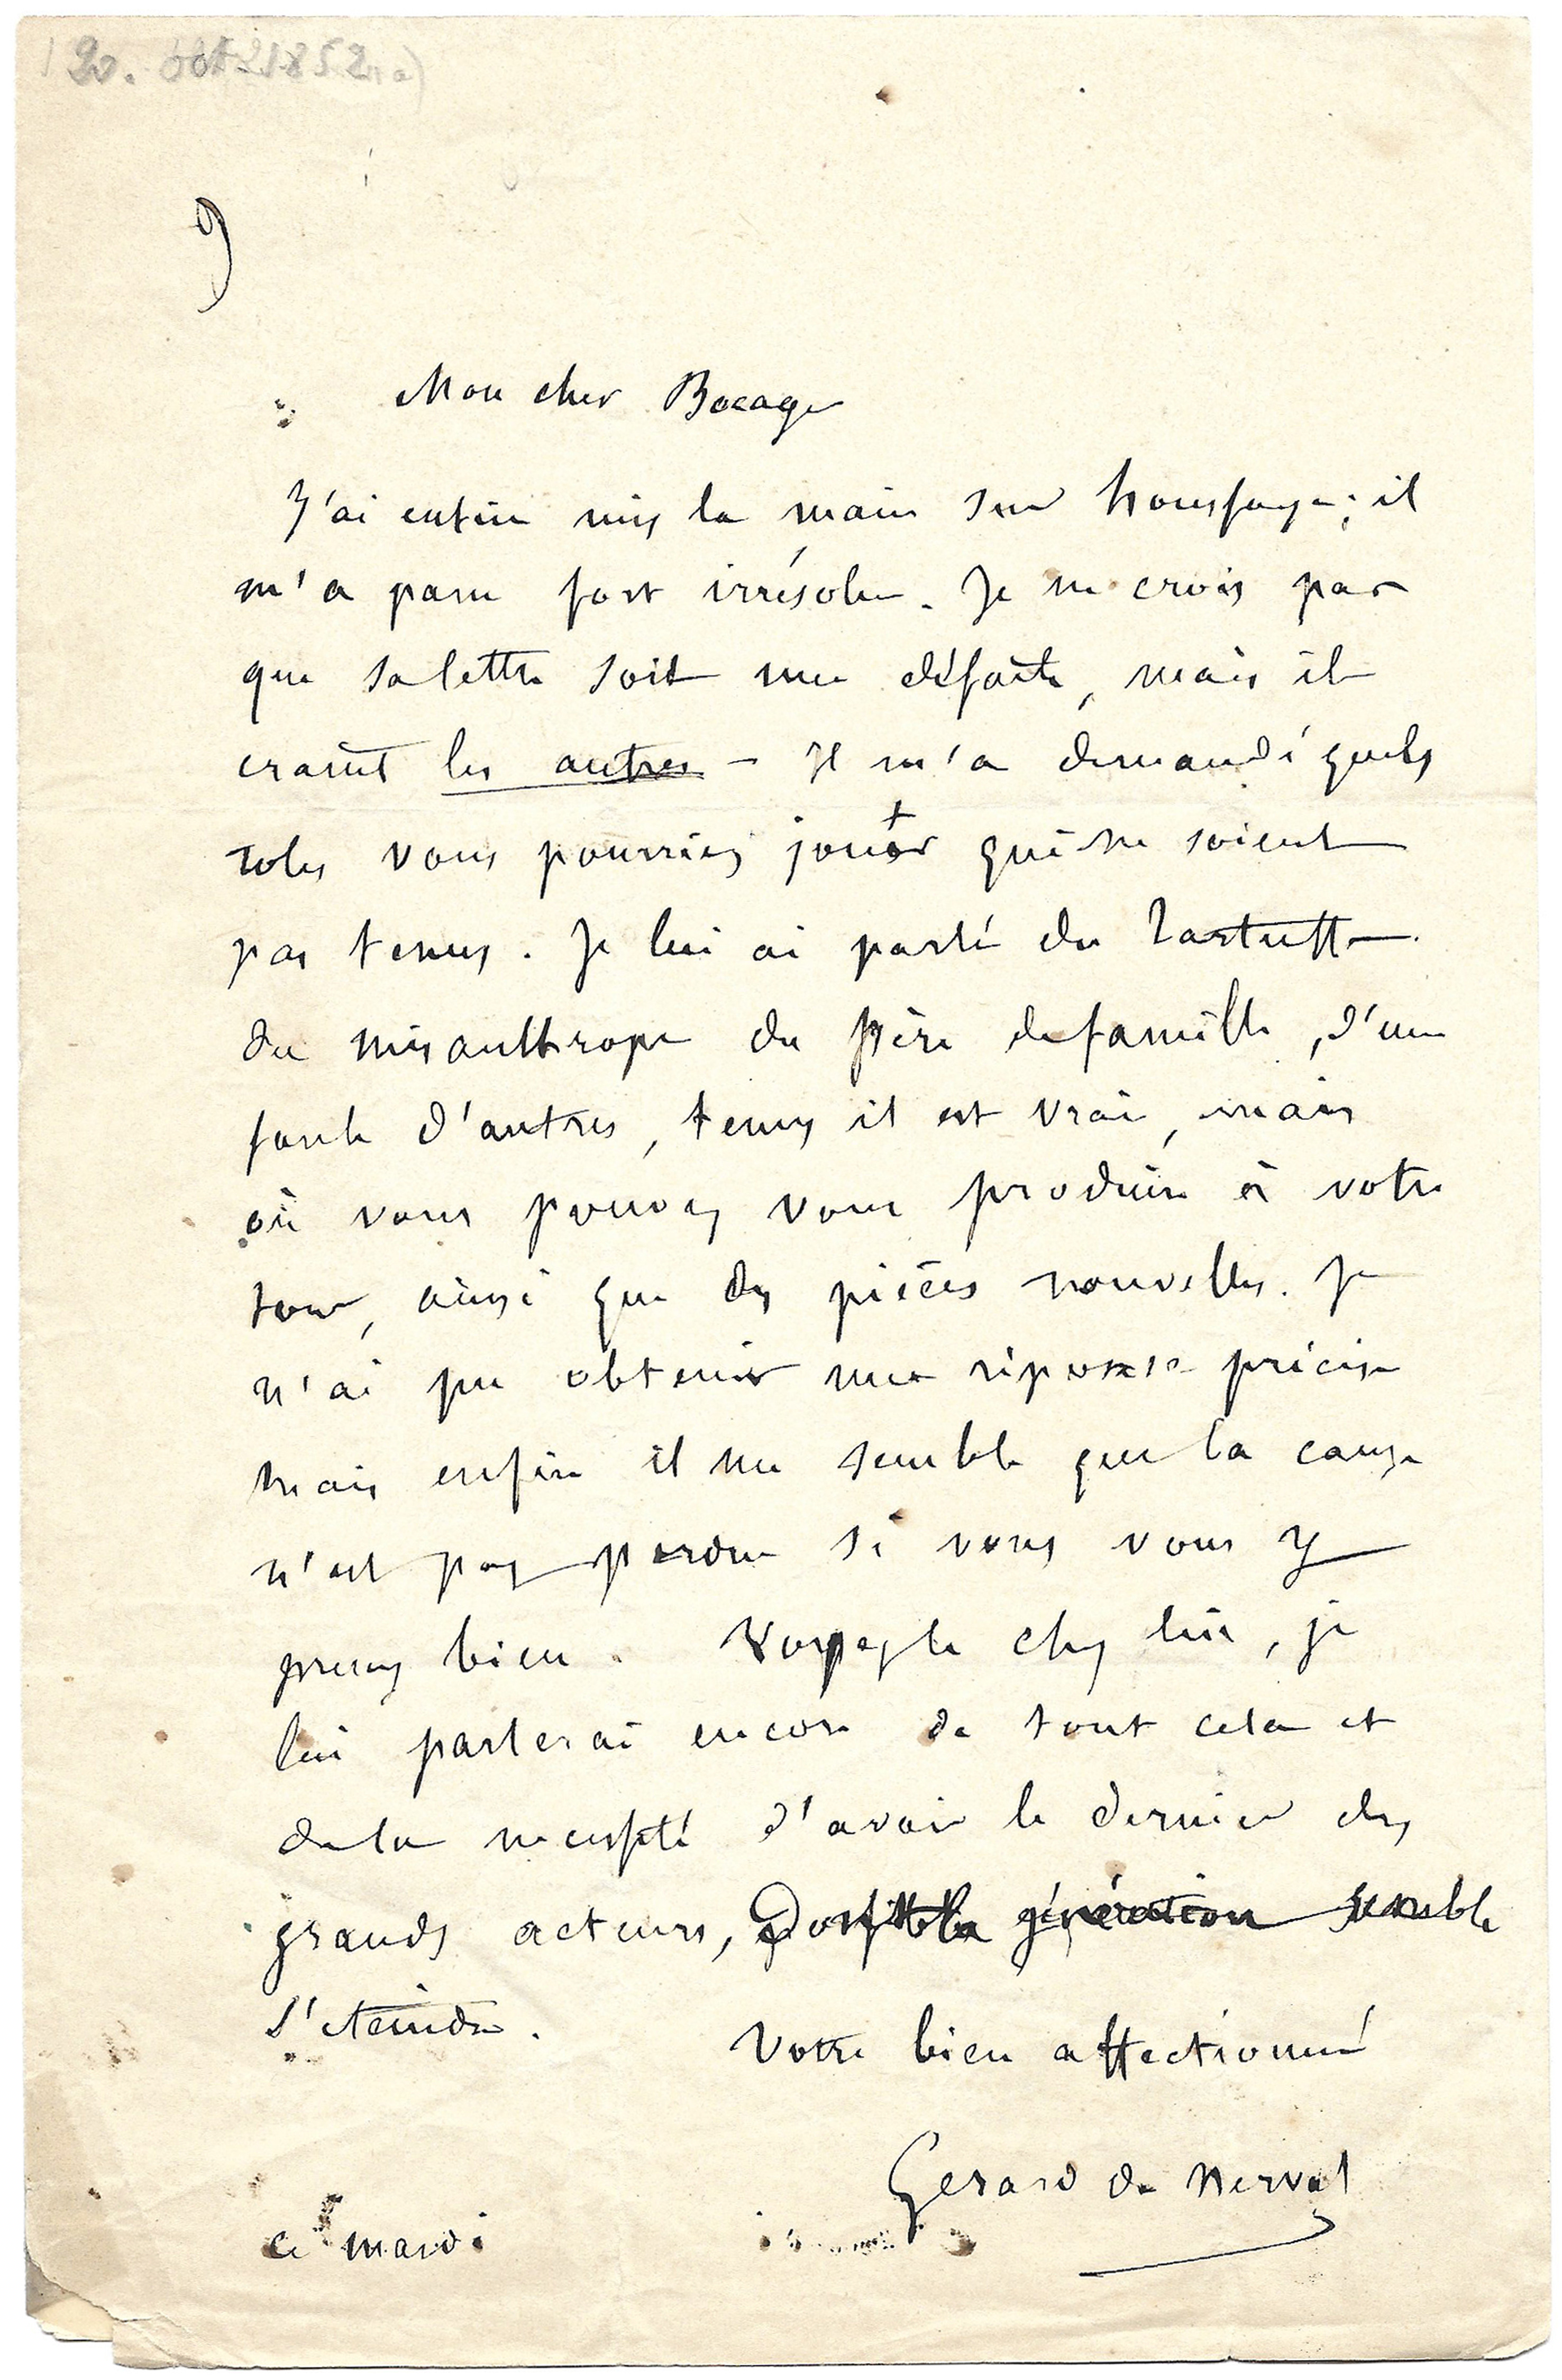 20. oct 1852
9
Mon cher Bocage
J'ai enfin mis la main sur houssaye ; il
m'a paru fort irrésolu. Je ne crois pas
que sa lettre soit une défaite, mais il
craint les autres – Il m'a demandé quels
roles vous pourriez jouer qui ne soient
pas tenus. Je lui ai parlé du Tartuffe
du misanthrope du père de famille, d'une
foule d'autres, tenus il est vrai, mais
où vous pouvez vous produire à votre
tour, ainsi que des pièces nouvelles. Je
n'ai pu obtenir une réponse précise
mais enfin il me semble que la cause
n'est pas perdue si vous vous y
prenez bien. Voyez le chez lui, je
lui parlerai encore de tout cela et
de la necessité d'avoir le dernier des
grands acteurs, dont la génération semble
s'eteindre.
Votre bien affectionné
Gerard de Nerval
ce mardi